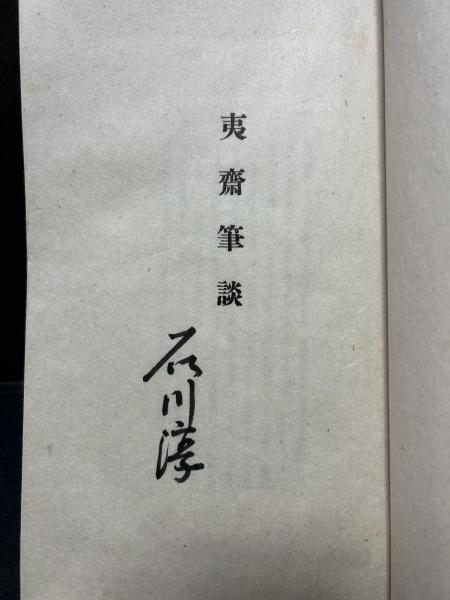 夷齋筆談
石川淳